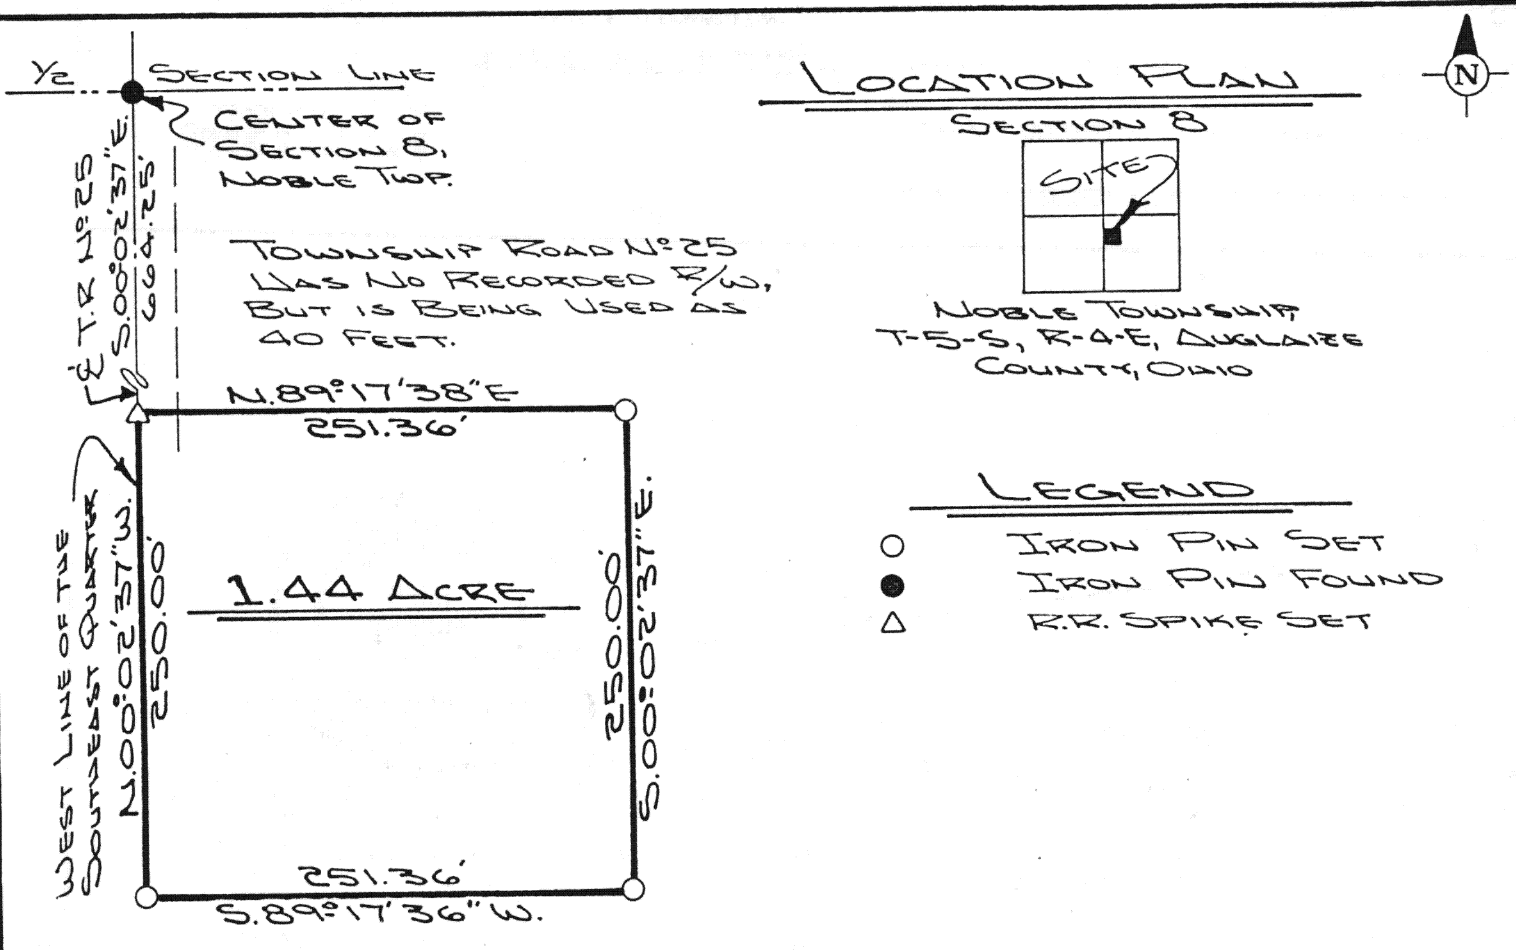 1/2 SECTION LINE
CENTER OF
SECTION 8,
NOBLE TWP.
℄ T.R Nº25
S.00°02'37"E.
664.25'
TOWNSHIP ROAD Nº25
HAS NO RECORDED R/W,
BUT IS BEING USED AS
40 FEET.
N.89°17'38"E
251.36'
WEST LINE OF THE
SOUTHEAST QUARTER
N.00°02'37"W.
250.00'
1.44 ACRE
250.00'
S.00°02'37"E.
251.36'
S.89°17'36"W.
LOCATION PLAN
SECTION 8
SITE
NOBLE TOWNSHIP
T-5-S, R-4-E, AUGLAIZE
COUNTY, OHIO
N
LEGEND
IRON PIN SET
IRON PIN FOUND
R.R. SPIKE SET